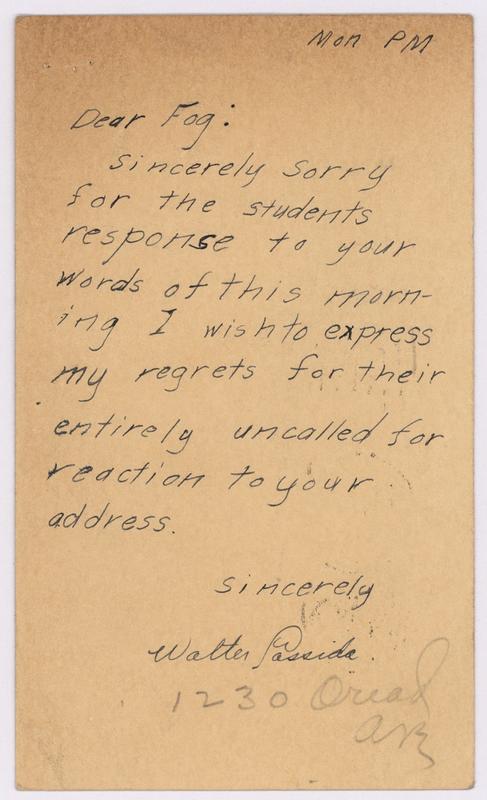 Mon PM
Dear Fog:
Sincerely sorry
for the students
response to your
words of this morn-
ing I wish to express
my regrets for their
entirely uncalled for
reaction to your
address.
Sincerely
Walter Cassida.
1230 Oread